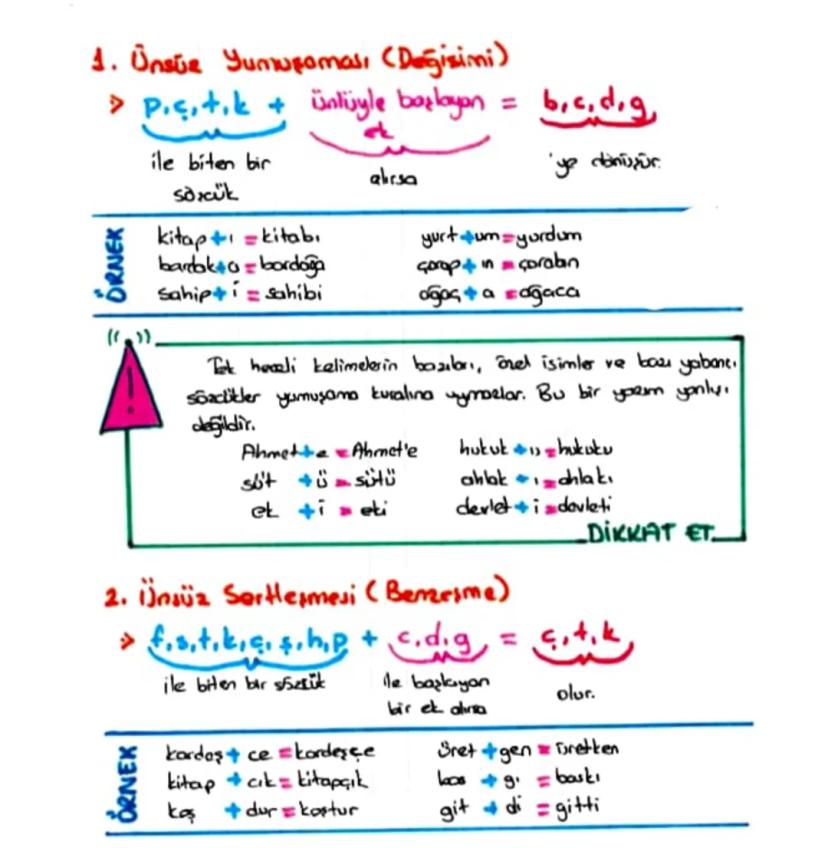 1. Ünsüz Yumuşaması (Değişimi)
> p,ç,t,k + ünlüyle başlayan ek = b,c,d,g
ile biten bir sözcük
alırsa
'ye dönüşür.
ÖRNEK
kitap+ı = kitabı
yurt+um=yurdum
bardak+a=bardağa
çorap+ın=çorabın
sahip+i=sahibi
ağaç+a=ağaca
((.))
!
Tek heceli kelimelerin bazıları, özel isimler ve bazı yabancı
sözcükler yumuşama kuralına uymazlar. Bu bir yazım yanlışı
değildir.
Ahmet+e=Ahmet'e
hukuk+u=hukuku
süt+ü=sütü
ahlak+ı=ahlakı
ek+i=eki
devlet+i=devleti
DİKKAT ET
2. Ünsüz Sertleşmesi (Benzeşme)
> f,s,t,k,ç,ş,h,p + c,d,g = ç,t,k
ile biten bir sözcük
ile başlayan
bir ek alırsa
olur.
ÖRNEK
kardeş+ce=kardeşçe
üret+gen=üretken
kitap+cık=kitapçık
bas+gı=baskı
koş+dur=koştur
git+di=gitti